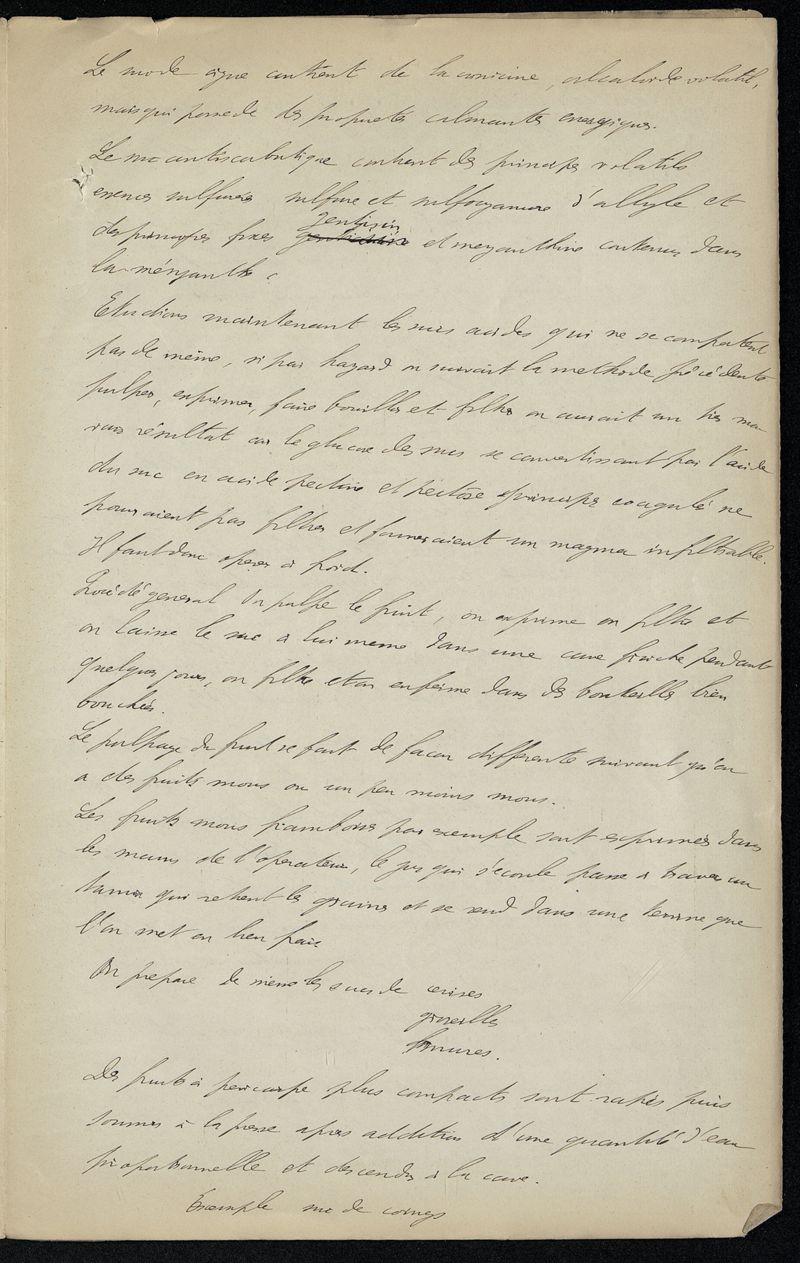 Le suc de cigue contient de la conicine, alcaloide volatil,
mais qui possede des proprietés calmantes energiques.
Le suc antiscorbutique contient des principes volatils
essences sulfurées sulfure et sulfocyanure d'allyle et
des principes fixes gentisin et menyanthine contenus dans
la ményanthe.
Etudions maintenant les sucs acides qui ne se comportent
pas de même, si par hazard on suivait la methode précédente
pulper, exprimer, faire bouillir et filtrer on aurait un tres mau
vais résultat car le glucose des sucs se convertissant par l'acide
du suc en acide pectine et pectose principes coagulés ne
pourraient pas filtrer et formeraient un magma infiltrable.
Il faut donc operer à froid.
Procédé general On pulpe le fruit, on exprime on filtre et
on laisse le suc a lui meme dans une cave fraiche pendant
quelques jours, on filtre et on enferme dans des bouteilles bien
bouchées.
Le pulpage du fruit se fait de facon differente suivant qu'on
a des fruits mous ou un peu moins mous.
Les fruits mous framboises par exemple sont exprimés dans
les mains de l'operateur, le jus qui s'ecoule passe à travers un
tamis qui retient les graines et se rend dans une terrine que
l'on met en lieu frais
On prepare de meme les sucs de cerises
groseilles
mures.
Des fruits à pericarpe plus compacts sont rapés puis
soumis à la presse apres addition d'une quantité d'eau
proportionnelle et descendus à la cave.
Exemple suc de coings